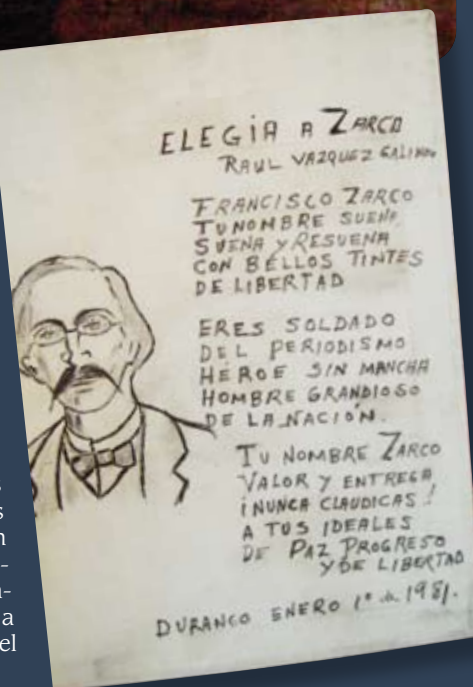 ELEGIA A ZARCO
RAUL VAZQUEZ
FRANCISCO ZARCO
TU NOMBRE SUENA,
SUENA Y RESUENA
CON BELLOS TINTES
DE LIBERTAD
ERES SOLDADO
DEL PERIODISMO
HEROE SIN MANCHA
HOMBRE GRANDIOSO
DE LA NACIÓN.
TU NOMBRE ZARCO
VALOR Y ENTREGA
¡NUNCA CLAUDICAS!
A TUS IDEALES
DE PAZ PROGRESO
Y DE LIBERTAD
DURANGO ENERO 1º de 1981.
a
el